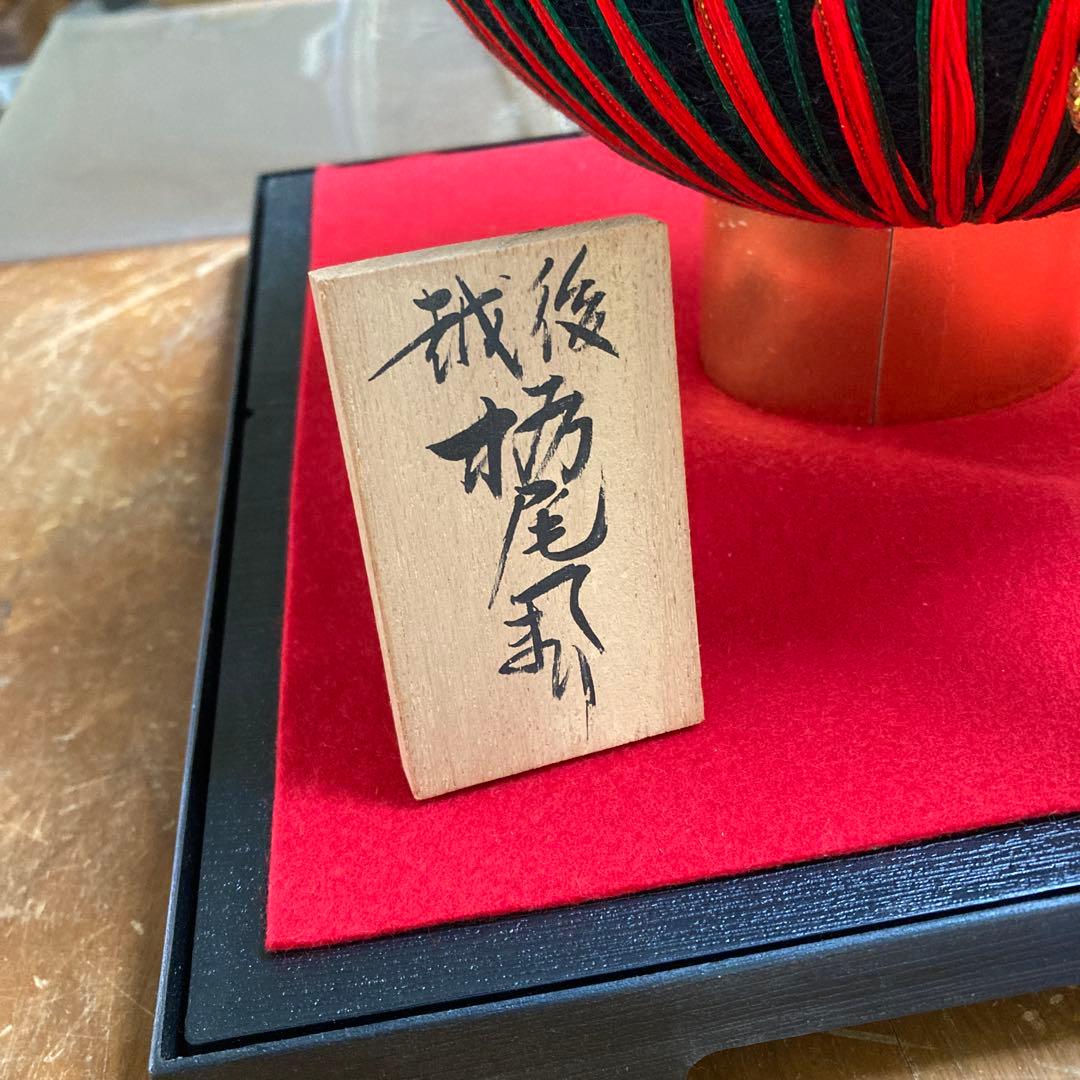 越後
栃尾てまり